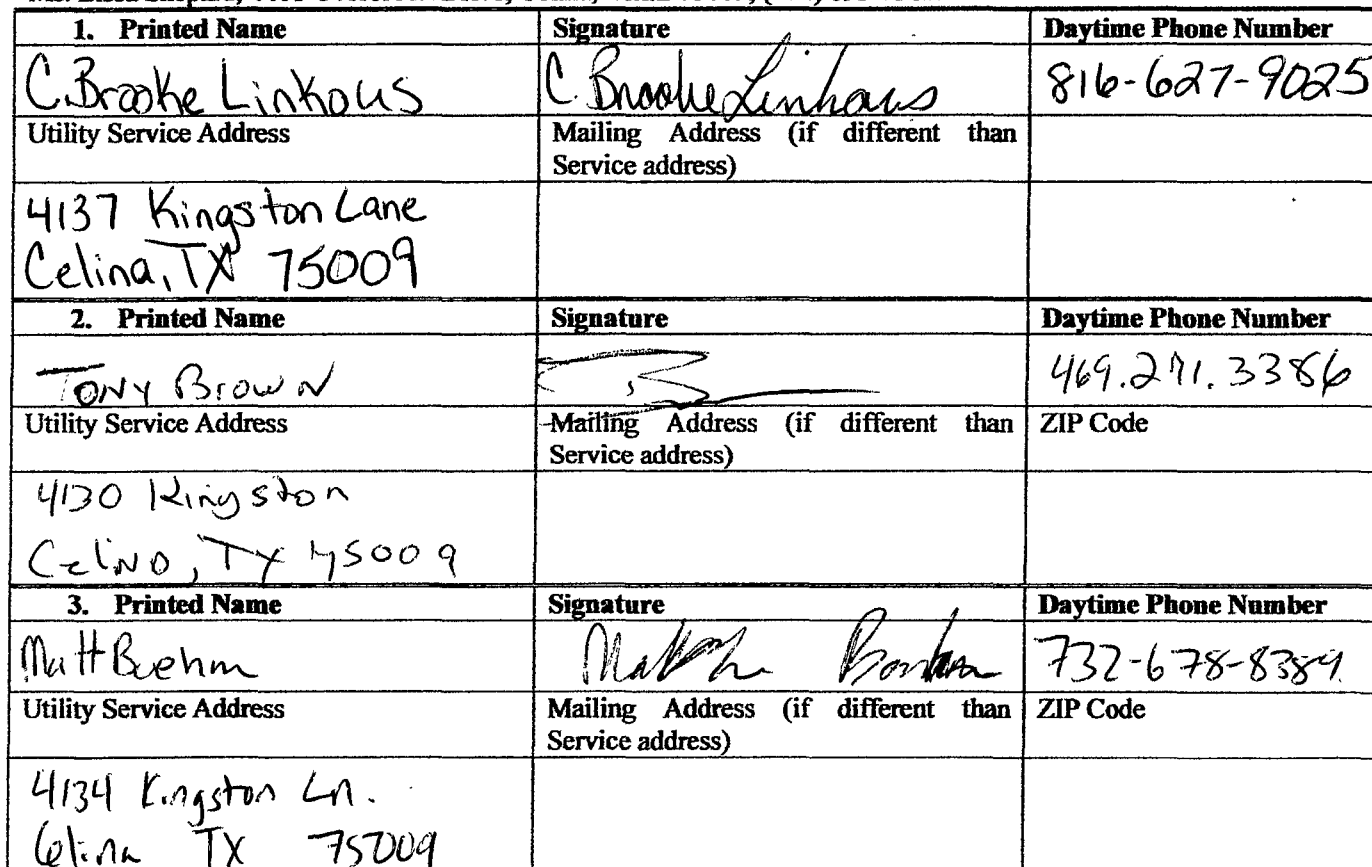 1. Printed Name Signature Daytime Phone Number
C. Brooke Linkous C. Brooke Linkous 816-627-9025
Utility Service Address Mailing Address (if different than
Service address)
4137 Kingston Lane
Celina, TX 75009
2. Printed Name Signature Daytime Phone Number
Tony Brown 469.271.3386
Utility Service Address Mailing Address (if different than ZIP Code
Service address)
4130 Kingston
Celina, TX 75009
3. Printed Name Signature Daytime Phone Number
Matt Boehm 732-678-8389
Utility Service Address Mailing Address (if different than ZIP Code
Service address)
4134 Kingston Ln.
Celina TX 75009